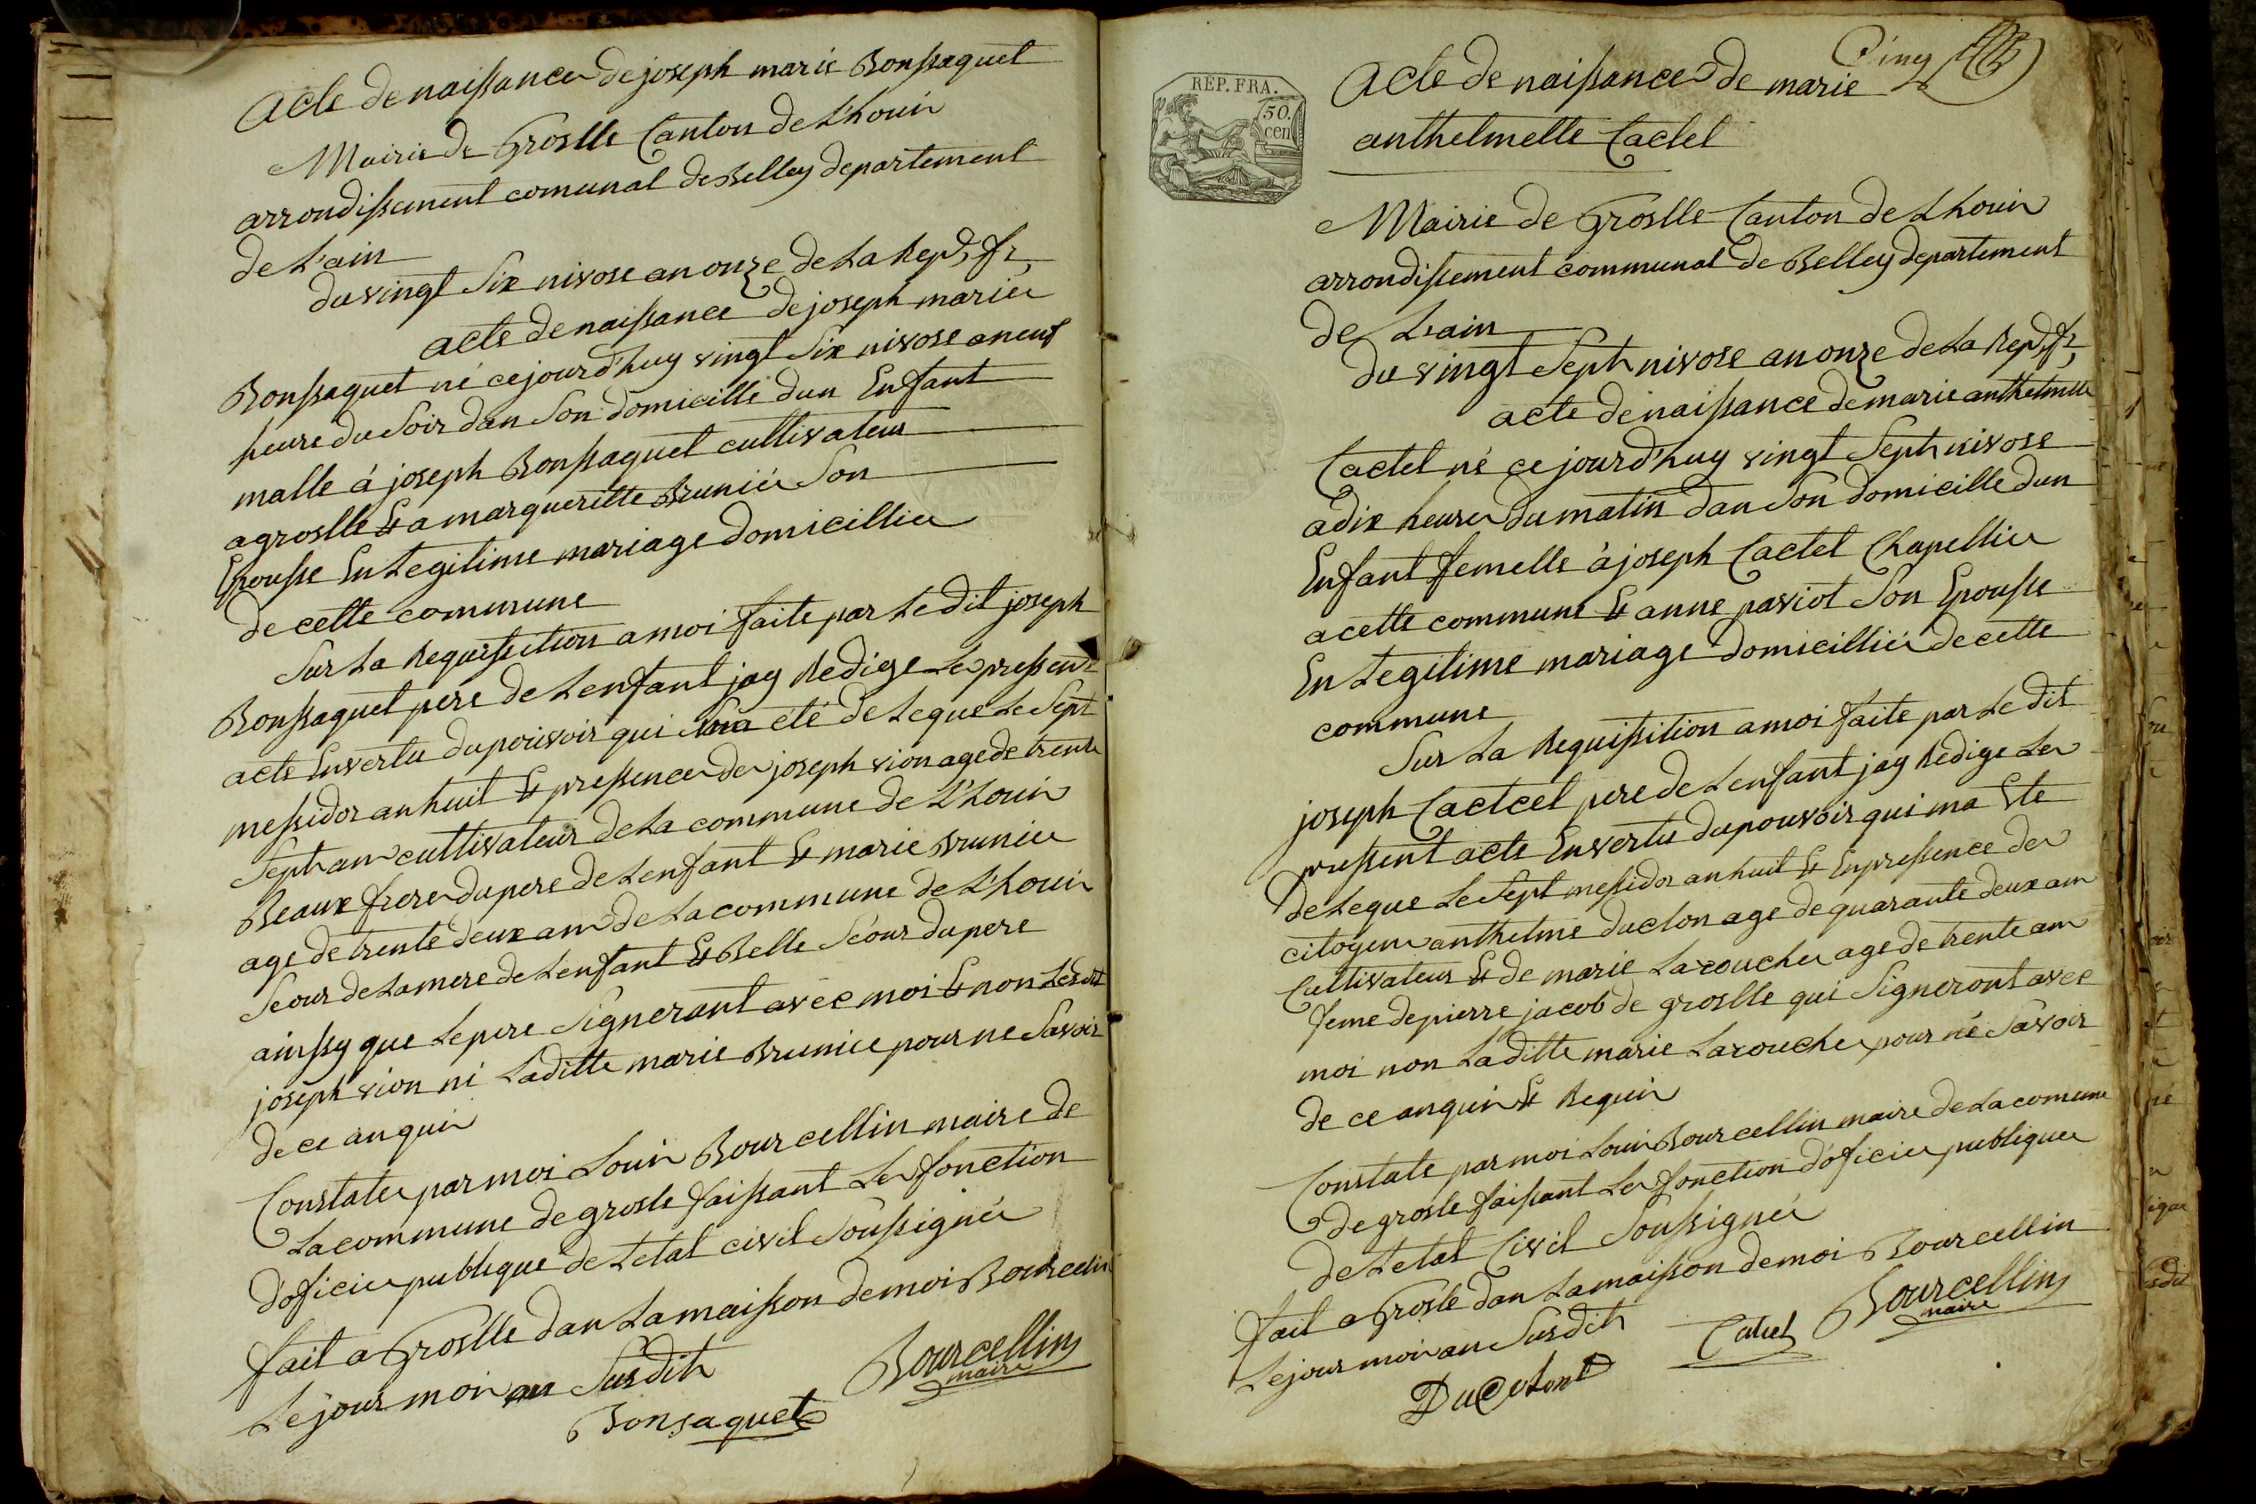 Acte de naissance de joseph marie Bonssaquet
Mairie de Groslle Canton de L'houis
arrondissement comunal de Belley departement
de L'ain
du vingt Six nivose an onze de La Rep, fr,
acte de naissance de joseph marie
Bonssaquet né cejourd'huy vingt Six nivose a neuf
heure du Soir dan Son domicille dun Enfant
malle á joseph Bonssaquet cultivateur
a groslle & a margueritte Brunier Son
Epousse En Legitime mariage domicillies
de cette commune
Sur La Requissition a moi faite par Le dit joseph
Bonssaquet pere de Lenfant jay Redige Le pressent
acte Envertu du pouvoir qui ma été delegue Le Sept
messidor an huit & pressence de joseph vion age de trente
Sept ans cultivateur de La commune de L'houis
Beaux frere du pere de Lenfant & marie Brunier
age de trente deux ans de La commune de L'houis
Seour de Lamere de Lenfant & Belle Seour du pere
ainssy que Le pere Signerant avec moi & non Ledit
joseph vion ni Laditte marie Brunier pour ne Savoir
de ce anquis
Constate par moi Louis Bourcellin maire de
La commune de grosle faissant Les fonction
d'oficier publique de Letat civil Soussignés
fait a Groslle dan La maisson de moi Bourcellin
Le jour mois an Susdits
Bourcellin
maire
Bonsaquet
Cinq
REP. FRA.
50.
cen
Acte de naissance de marie
anthelmette Cactel
Mairie de Groslle Canton de Lhouis
arrondissement communal de Belley departement
de L'ain
du vingt Sept nivose an onze de La Rep, fr,
acte de naissance de marie anthelmette
Cactel né ce jourd'huy vingt Sept nivose
a dix heures du matin dan Son domicille dun
Enfant femelle á joseph Cactel Chapellier
a cette commune & anne paviot Son Epousse
En Legitime mariage domicilliés de cette
commune
Sur La Requissition a moi faite par Le dit
joseph Cactcel pere de Lenfant jay Redige Le
pressent acte Envertu du pouvoir qui ma Ete
delegue Le Sept messidor an huit & Enpressence de
citoyens anthelme duclon age de quarante deux ans
Cultivateur & de marie Larouche age de trente ans
feme de pierre jacob de groslle qui Signeront avec
moi non Laditte marie Larouche pour né Savoir
de ce anquis & Requis
Constate par moi Louis Bourcellin maire de La comune
de grosle faissant Les fonction d'oficier publique
de Letat Civil Soussignés
fait a Grosle dan La maisson de moi Bourcellin
Le jour mois an Susdits
Bourcellin
maire
Catel